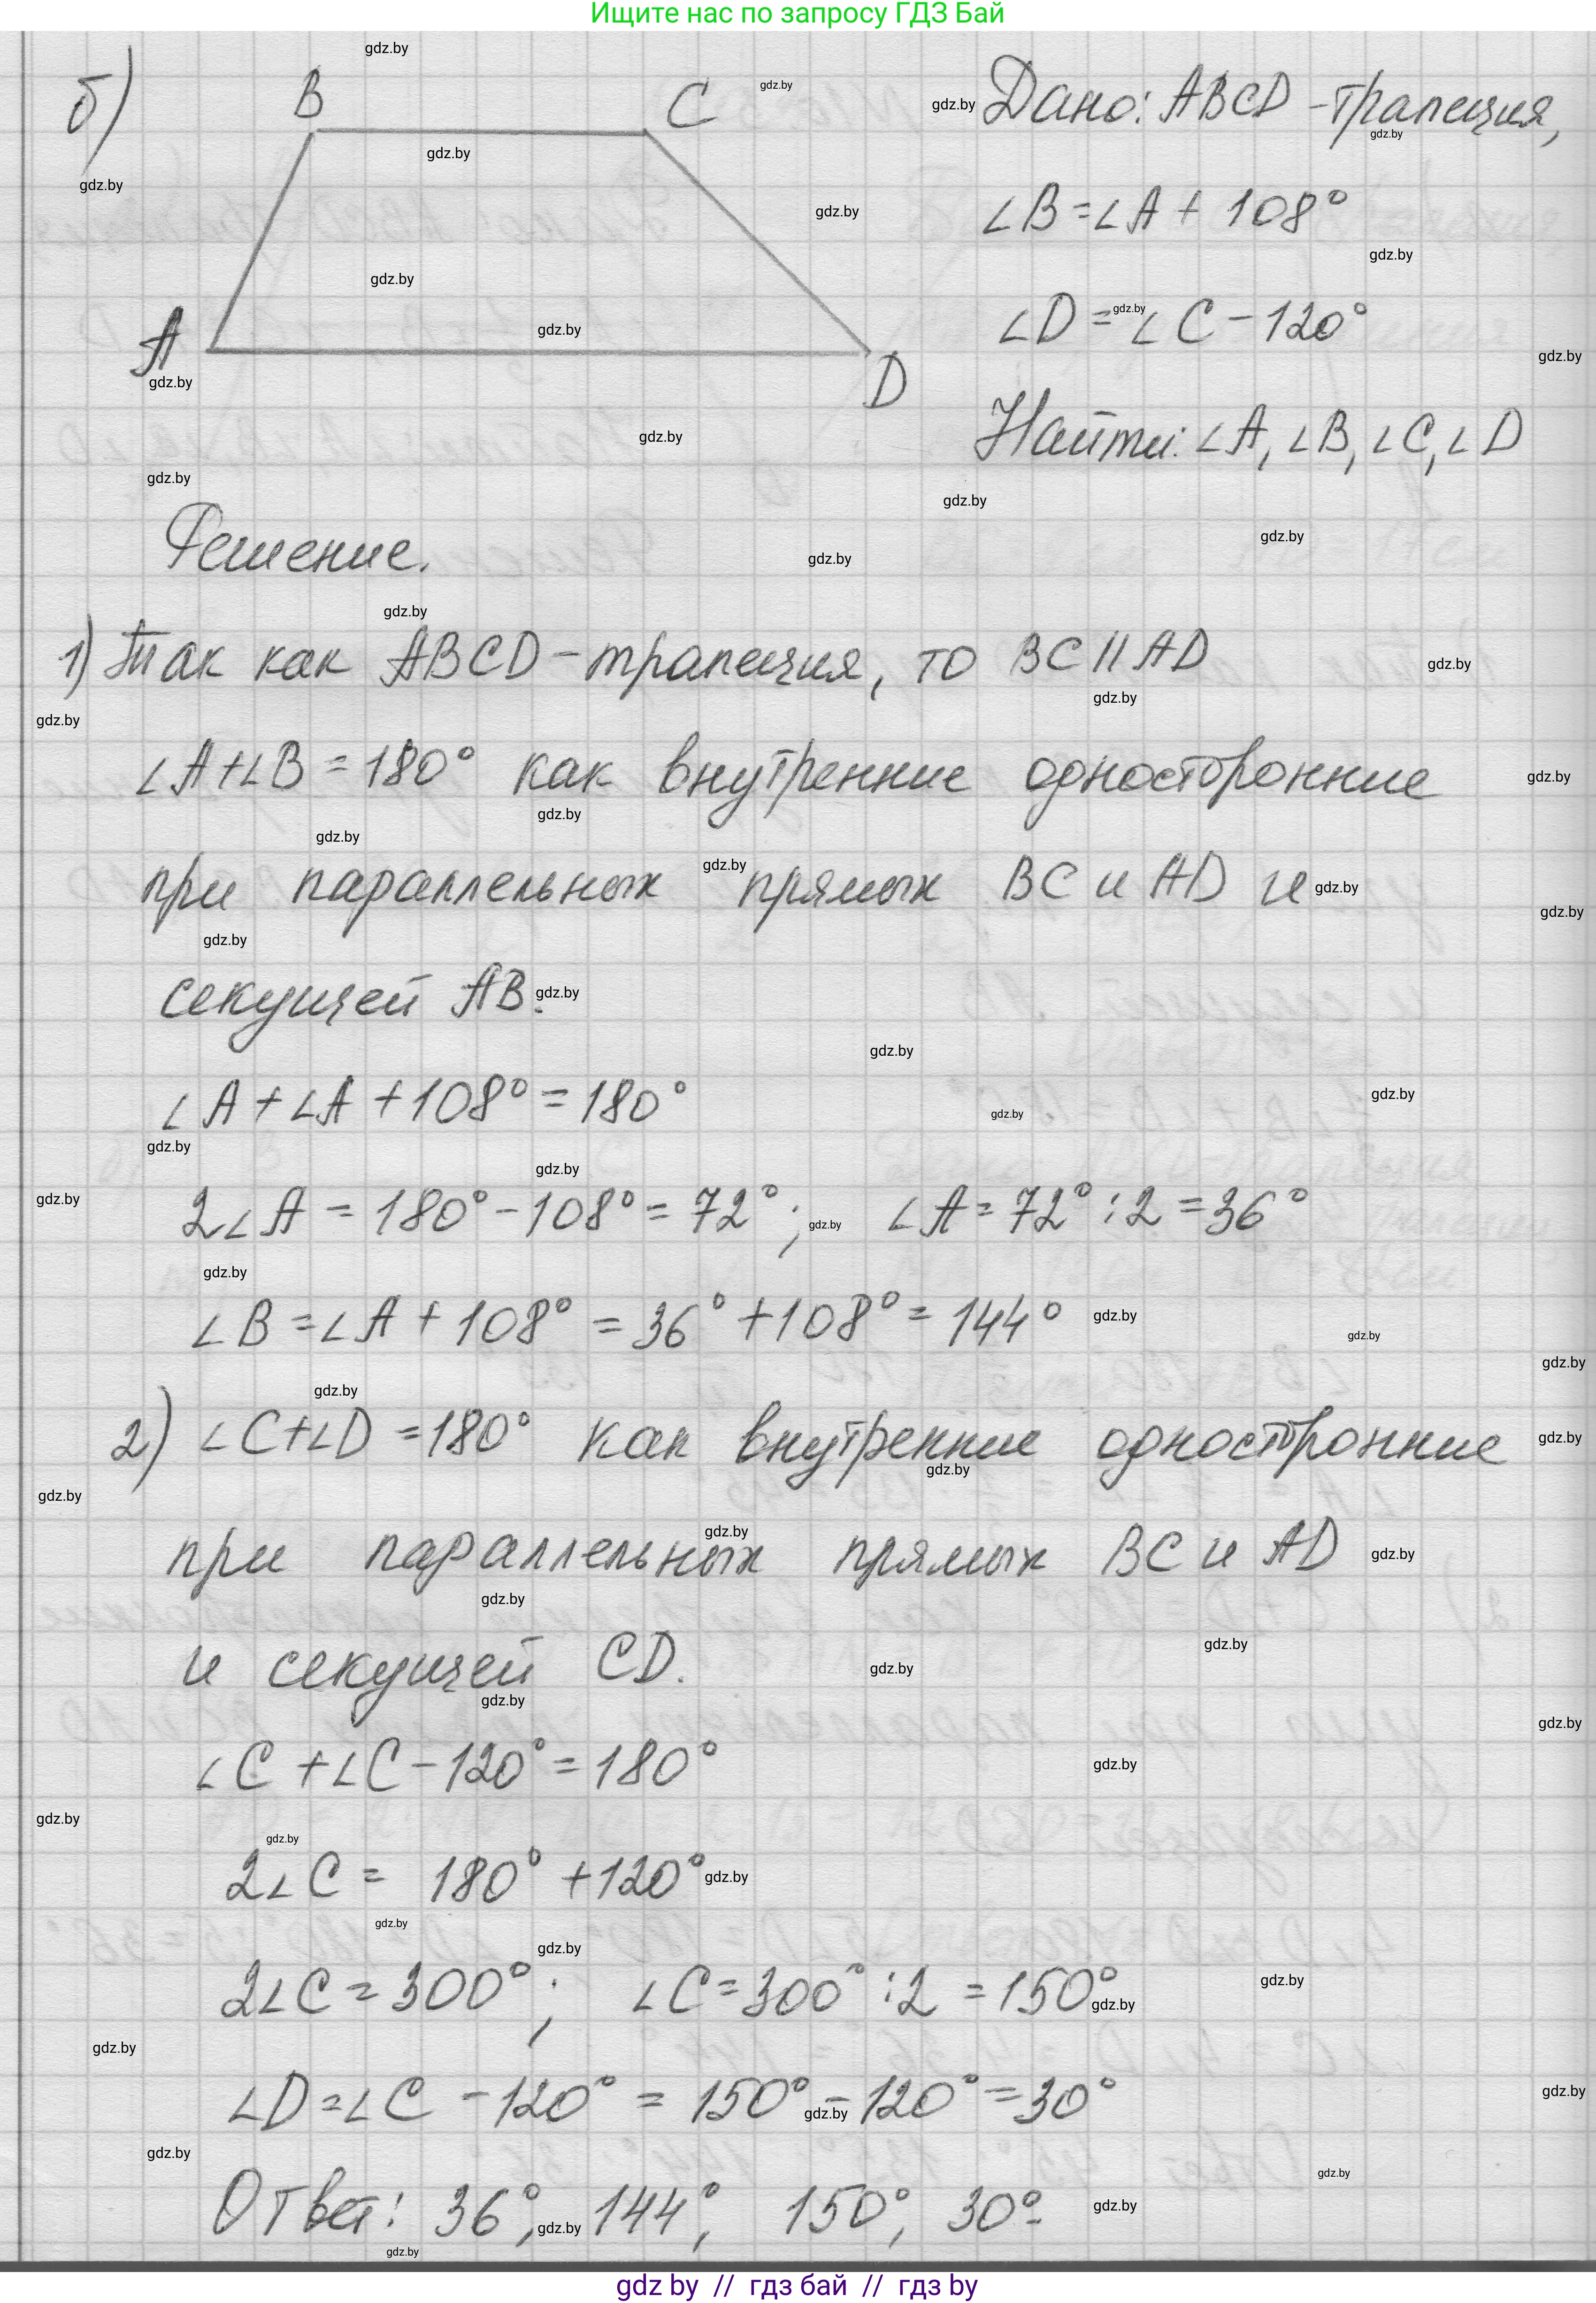 Ищите нас по запросу ГДЗ Бай
б)
B
C
A
D
Дано: ABCD - трапеция,
∠B = ∠A + 108°
∠D = ∠C - 120°
Найти: ∠A, ∠B, ∠C, ∠D
Решение.
1) Так как ABCD - трапеция, то BC || AD
∠A + ∠B = 180° как внутренние односторонние
при параллельных прямых BC и AD и
секущей AB.
∠A + ∠A + 108° = 180°
2∠A = 180° - 108° = 72°; ∠A = 72° : 2 = 36°
∠B = ∠A + 108° = 36° + 108° = 144°
2) ∠C + ∠D = 180° как внутренние односторонние
при параллельных прямых BC и AD
и секущей CD.
∠C + ∠C - 120° = 180°
2∠C = 180° + 120°
2∠C = 300°; ∠C = 300° : 2 = 150°
∠D = ∠C - 120° = 150° - 120° = 30°
Ответ: 36°, 144°, 150°, 30°.
gdz by // гдз бай // гдз by